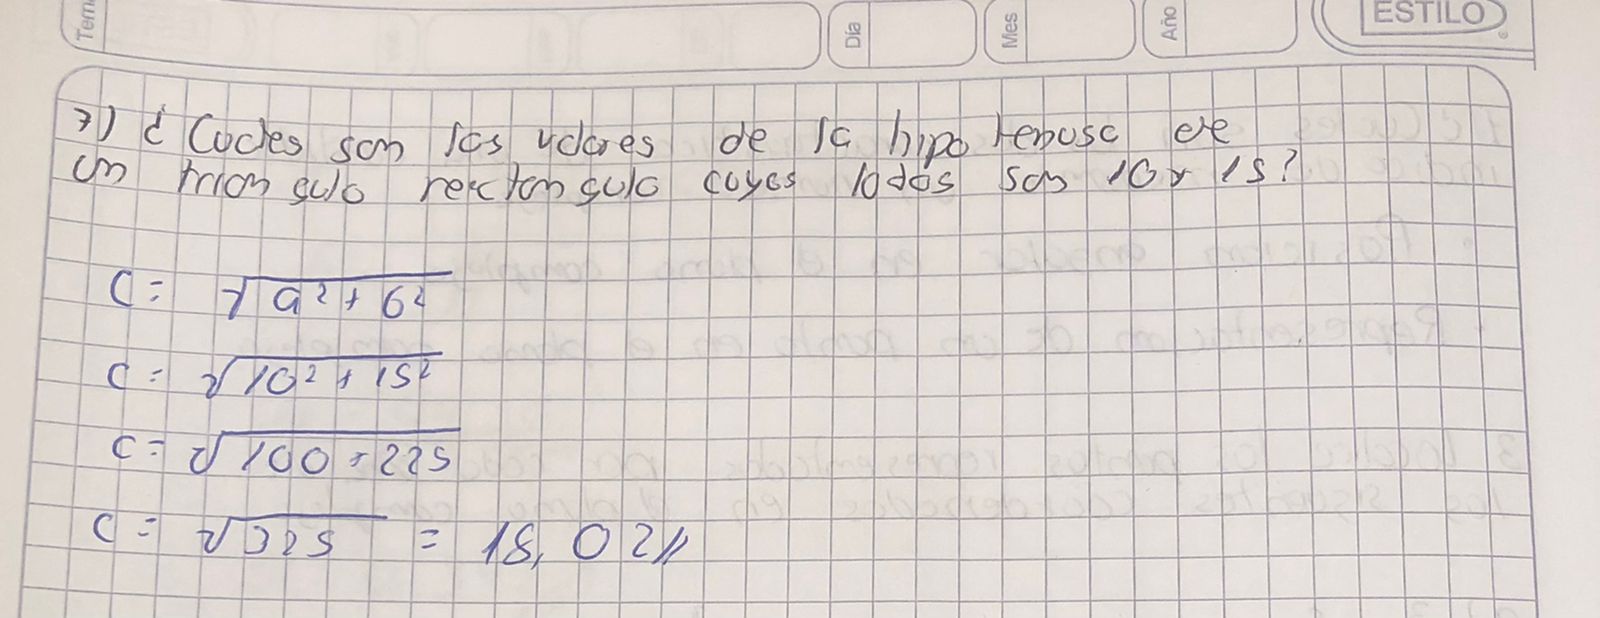 Tem
Día
Mes
Año
ESTILO
7) ¿ Cuales son los valores de la hipotenusa de
un triangulo rectangulo cuyos lados son 10 y 15?
C = √a² + b²
C = √10² + 15²
C = √100 + 225
C = √325 = 18,02//